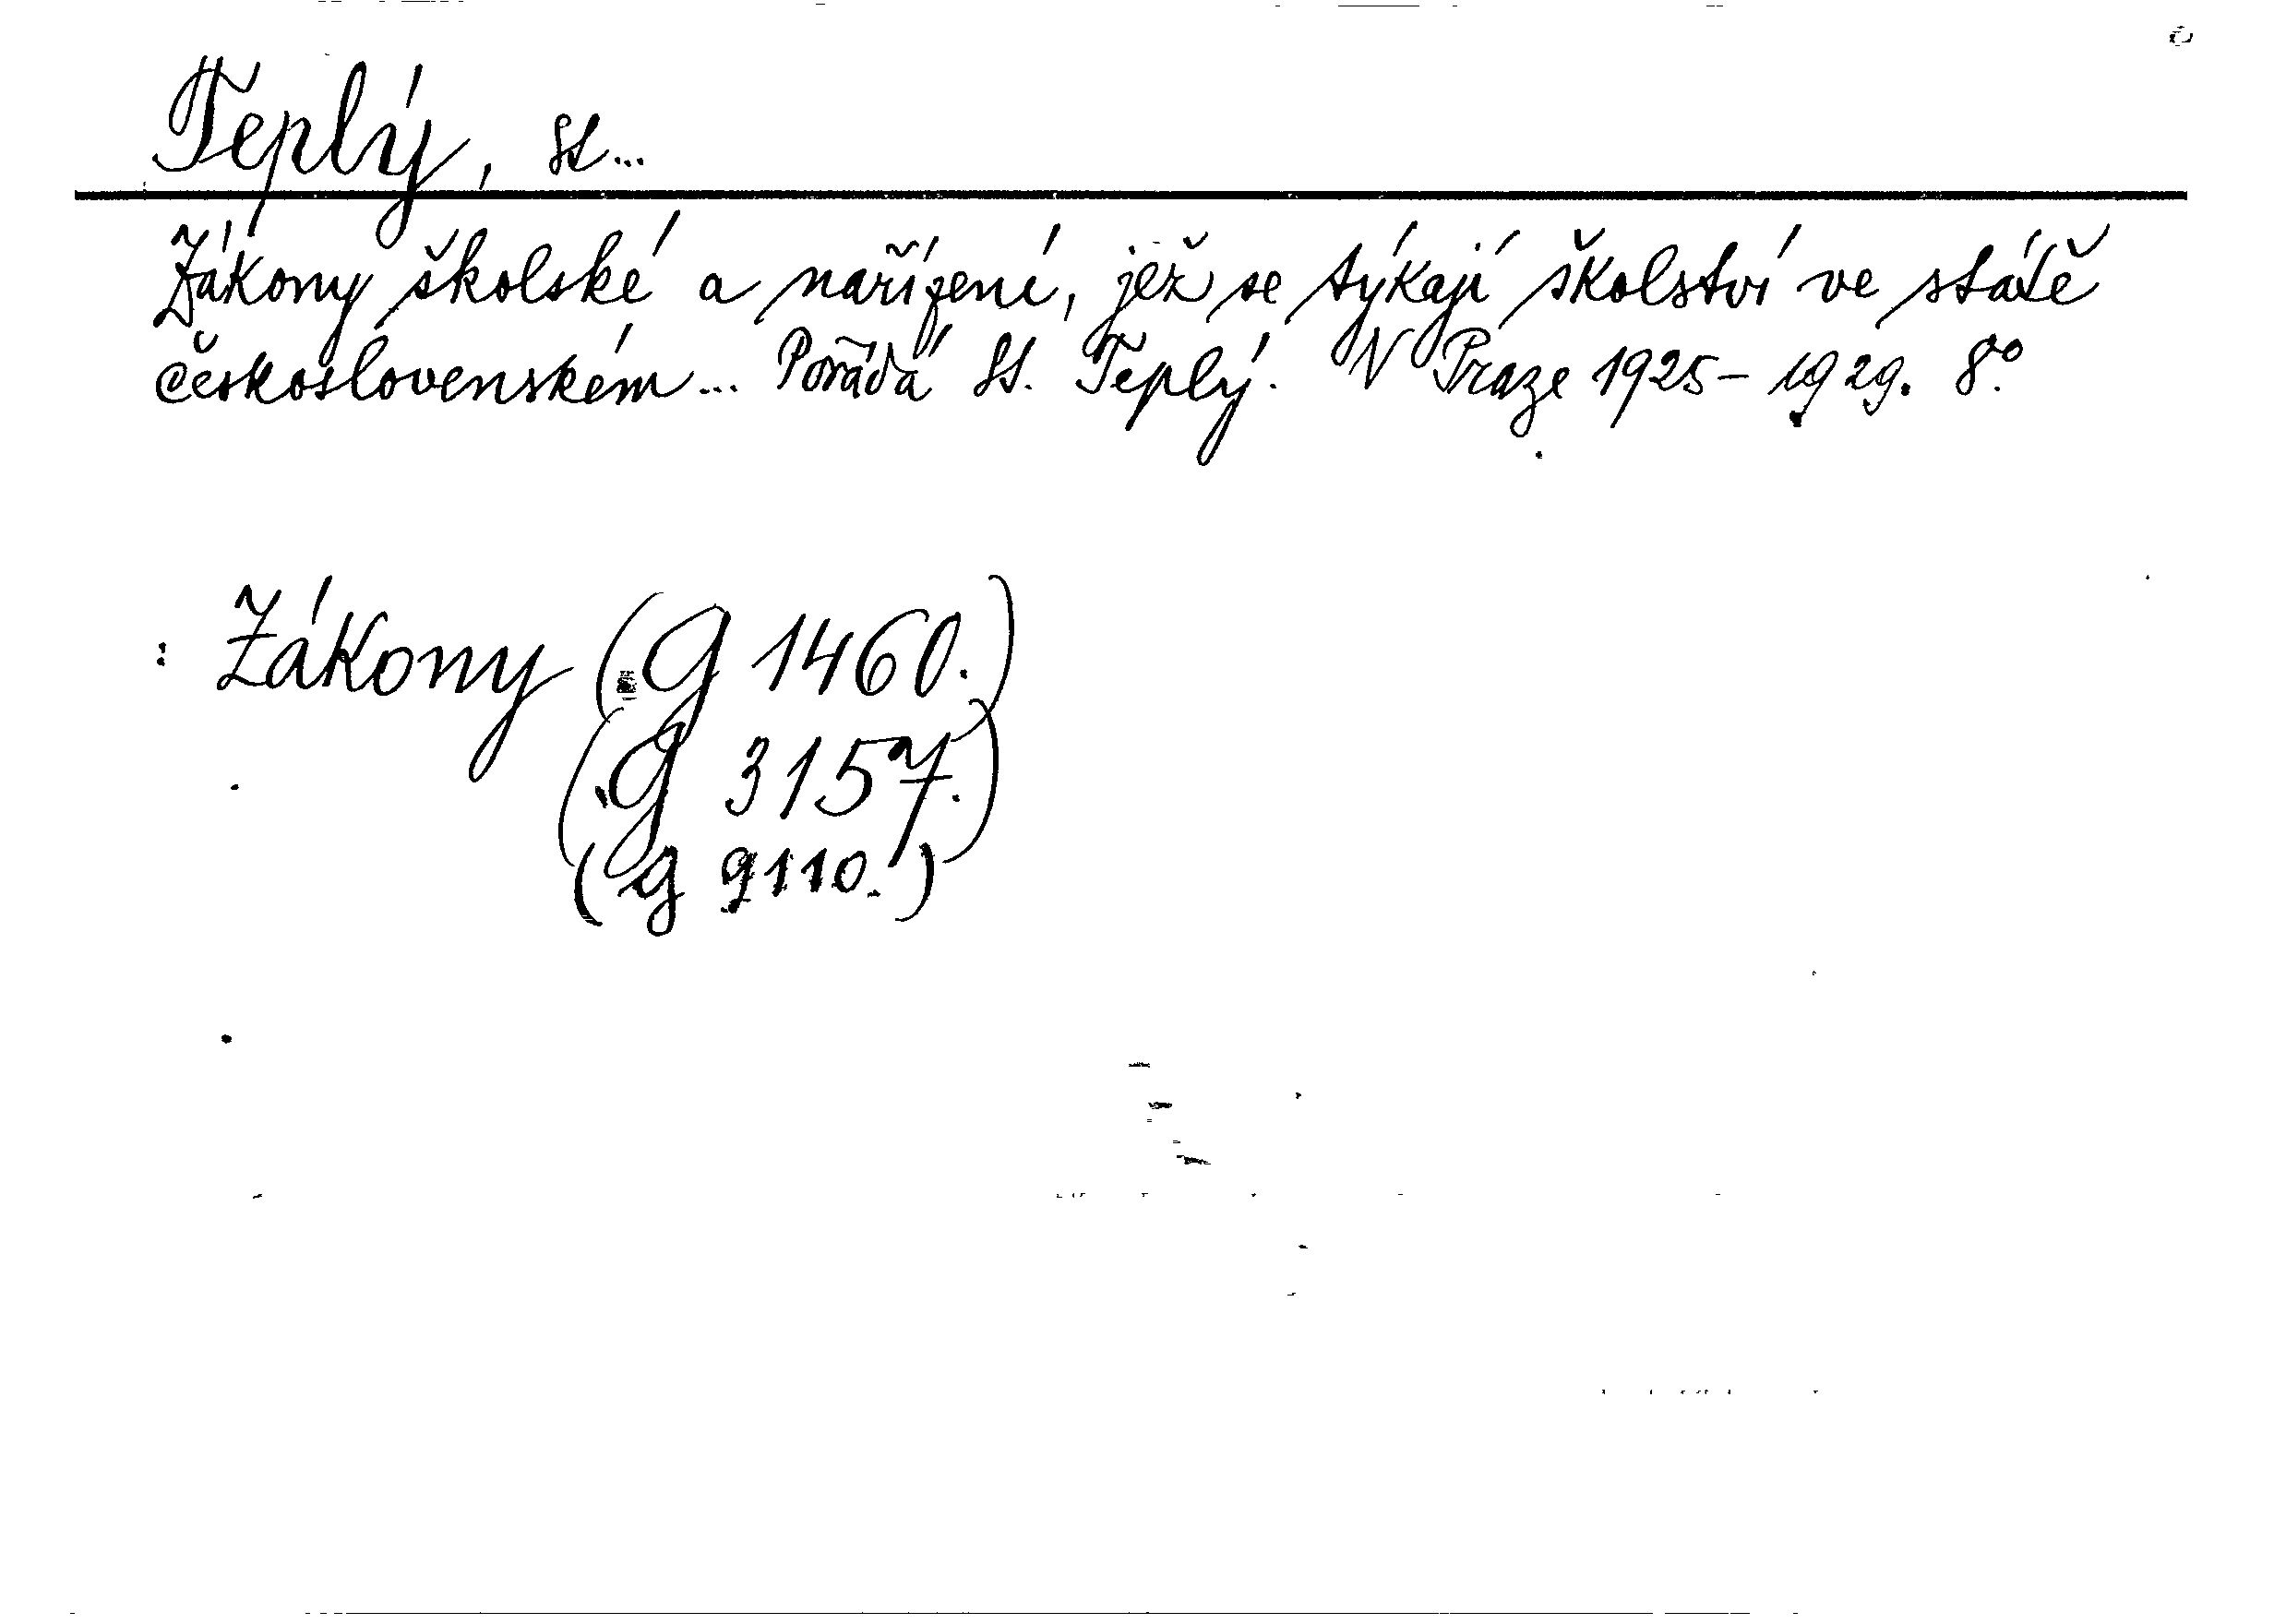 Teplý, St...
Zákony školské a nařízení, jež se týkají školství ve státě
československém... Pořádá St. Teplý. V Praze 1925-1929. 8°.
: Zákony (G 1460.)
(G 3157.)
(G 9110.)